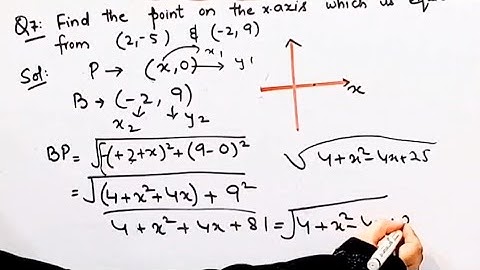 Q7: Find the point on the x-axis which is equ
from (2,-5) & (-2, 9)
Sol: P → (x,0) → y₁
x₁
B → (-2, 9)
x₂ y₂
x
BP = √(-(+2+x)²+(9-0)²
√4+x²-4x+25
= √(4+x²+4x) + 9²
4+x²+4x+81 = √4+x²-4